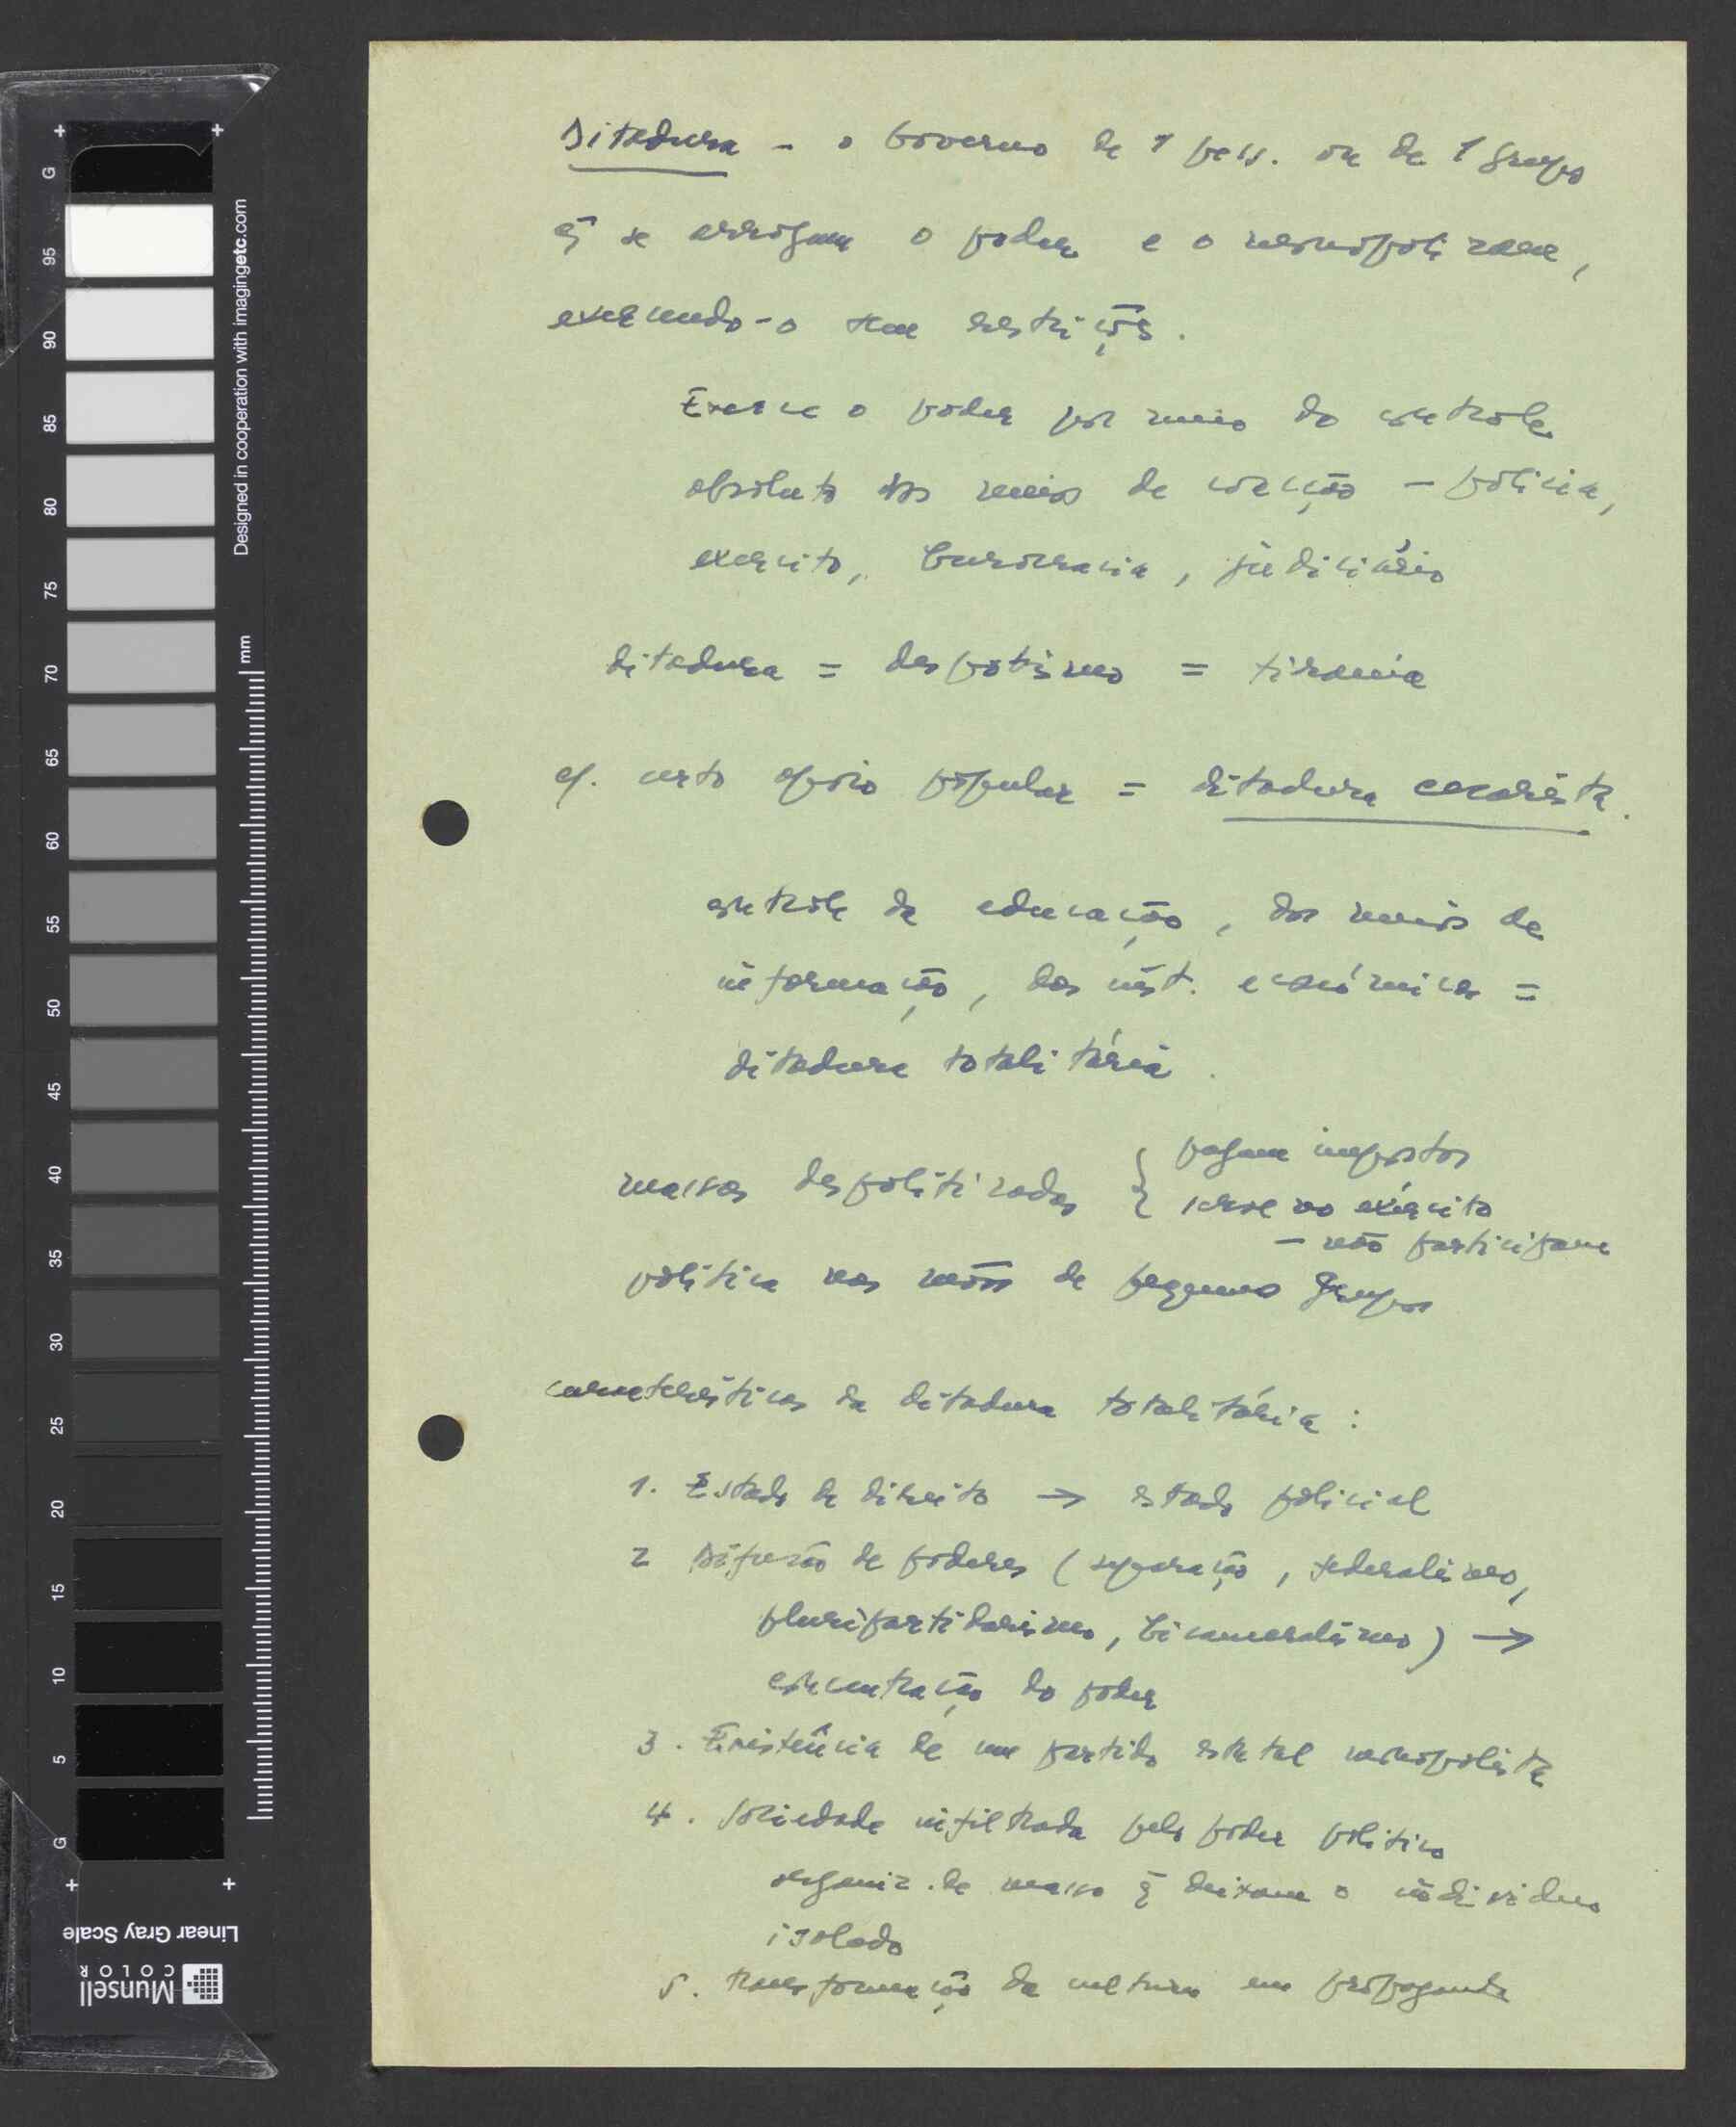 Ditadura - o governo de 1 pess. ou de 1 grupo
q̃ se arrogam o poder e o monopolizam,
exercendo-o sem restrições.
Exerce o poder por meio do controle
absoluto dos meios de coerção - polícia,
exercito, burocracia, judiciário
ditadura = despotismo = tirania
c/. certo apoio popular = ditadura cesarista.
controle da educação, dos meios de
informação, das inst. econômicas =
ditadura totalitária.
massas despolitizadas { pagam impostos
serve no exército
- não participam
política nas mãos de pequenos grupos
características da ditadura totalitária :
1. Estado de direito → estado policial
2 Difusão de poderes (separação, federalismo,
pluripartidarismo, bicameralismo) →
concentração do poder
3. Existência de um partido estatal monopolista
4. Sociedade infiltrada pelo poder político
organiz. de massa q̃ deixam o indivíduo
isolado
5. transformação da cultura em propaganda
G
95
90
85
80
75
70
65
60
55
50
45
40
35
30
25
20
15
10
5
G
mm
Designed in cooperation with imagingetc.com
Linear Gray Scale
Munsell
COLOR